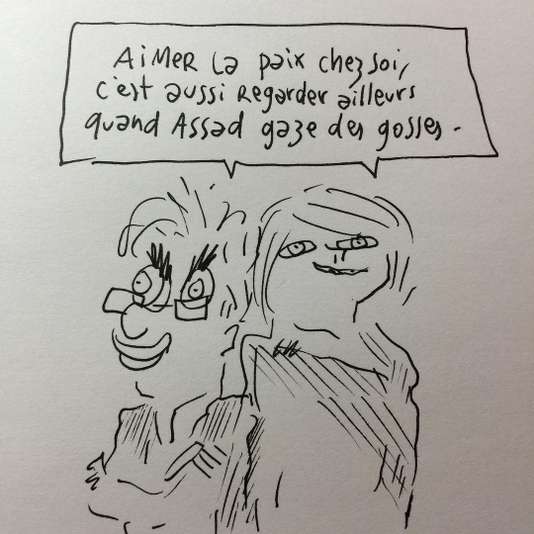 AiMER La paix chez soi,
c'est aussi REgarder ailleurs
quand ASSad gaze des gosses.